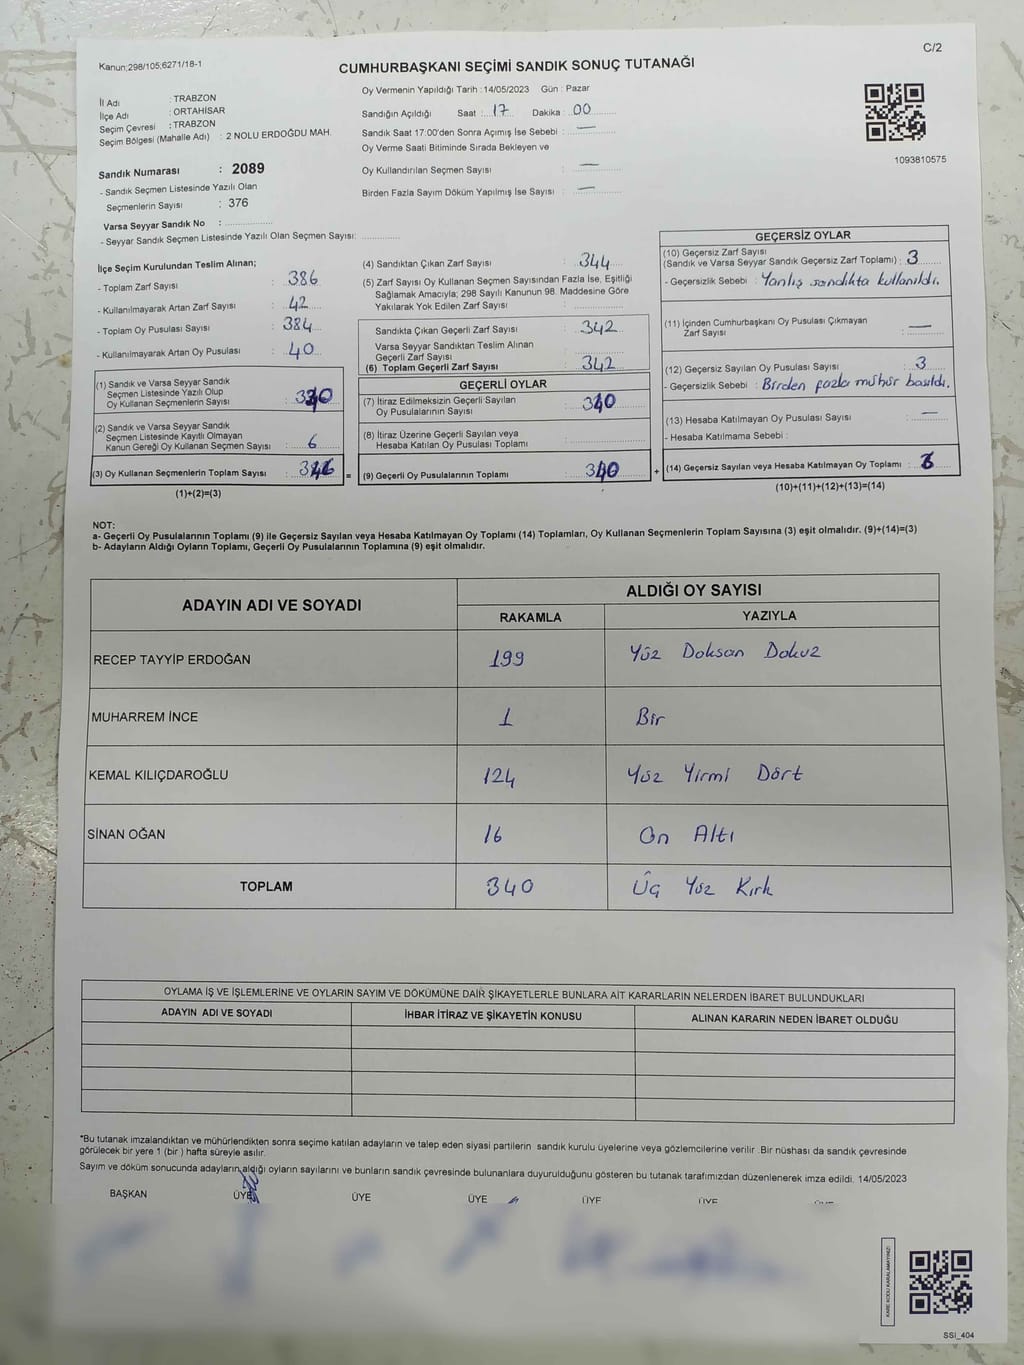 Kanun;298/105;6271/18-1
C/2
CUMHURBAŞKANI SEÇİMİ SANDIK SONUÇ TUTANAĞI
İl Adı : TRABZON
İlçe Adı : ORTAHİSAR
Seçim Çevresi : TRABZON
Seçim Bölgesi (Mahalle Adı) : 2 NOLU ERDOĞDU MAH.
Sandık Numarası : 2089
- Sandık Seçmen Listesinde Yazılı Olan
Seçmenlerin Sayısı : 376
Varsa Seyyar Sandık No :
- Seyyar Sandık Seçmen Listesinde Yazılı Olan Seçmen Sayısı:
Oy Vermenin Yapıldığı Tarih : 14/05/2023 Gün : Pazar
Sandığın Açıldığı Saat : 17 Dakika : 00
Sandık Saat 17:00'den Sonra Açımış İse Sebebi : —
Oy Verme Saati Bitiminde Sırada Bekleyen ve
Oy Kullandırılan Seçmen Sayısı : —
Birden Fazla Sayım Döküm Yapılmış İse Sayısı : —
1093810575
İlçe Seçim Kurulundan Teslim Alınan;
- Toplam Zarf Sayısı : 386
- Kullanılmayarak Artan Zarf Sayısı : 42
- Toplam Oy Pusulası Sayısı : 384
- Kullanılmayarak Artan Oy Pusulası : 40
(1) Sandık ve Varsa Seyyar Sandık
Seçmen Listesinde Yazılı Olup
Oy Kullanan Seçmenlerin Sayısı :
(2) Sandık ve Varsa Seyyar Sandık
Seçmen Listesinde Kayıtlı Olmayan
Kanun Gereği Oy Kullanan Seçmen Sayısı : 6
(3) Oy Kullanan Seçmenlerin Toplam Sayısı :
(1)+(2)=(3)
=
(4) Sandıktan Çıkan Zarf Sayısı : 344
(5) Zarf Sayısı Oy Kullanan Seçmen Sayısından Fazla İse, Eşitliği
Sağlamak Amacıyla; 298 Sayılı Kanunun 98. Maddesine Göre
Yakılarak Yok Edilen Zarf Sayısı :
Sandıkta Çıkan Geçerli Zarf Sayısı : 342
Varsa Seyyar Sandıktan Teslim Alınan
Geçerli Zarf Sayısı :
(6) Toplam Geçerli Zarf Sayısı : 342
GEÇERLİ OYLAR
(7) İtiraz Edilmeksizin Geçerli Sayılan
Oy Pusulalarının Sayısı : 340
(8) İtiraz Üzerine Geçerli Sayılan veya
Hesaba Katılan Oy Pusulası Toplamı :
(9) Geçerli Oy Pusulalarının Toplamı : 340
+
GEÇERSİZ OYLAR
(10) Geçersiz Zarf Sayısı
(Sandık ve Varsa Seyyar Sandık Geçersiz Zarf Toplamı) : 3
- Geçersizlik Sebebi : Yanlış sandıkta kullanıldı.
(11) İçinden Cumhurbaşkanı Oy Pusulası Çıkmayan
Zarf Sayısı : —
(12) Geçersiz Sayılan Oy Pusulası Sayısı : 3
- Geçersizlik Sebebi : Birden fazla mühür basıldı.
(13) Hesaba Katılmayan Oy Pusulası Sayısı : —
- Hesaba Katılmama Sebebi :
(14) Geçersiz Sayılan veya Hesaba Katılmayan Oy Toplamı :
(10)+(11)+(12)+(13)=(14)
NOT:
a- Geçerli Oy Pusulalarının Toplamı (9) ile Geçersiz Sayılan veya Hesaba Katılmayan Oy Toplamı (14) Toplamları, Oy Kullanan Seçmenlerin Toplam Sayısına (3) eşit olmalıdır. (9)+(14)=(3)
b- Adayların Aldığı Oyların Toplamı, Geçerli Oy Pusulalarının Toplamına (9) eşit olmalıdır.
ADAYIN ADI VE SOYADI
ALDIĞI OY SAYISI
RAKAMLA YAZIYLA
RECEP TAYYİP ERDOĞAN 199 Yüz Doksan Dokuz
MUHARREM İNCE 1 Bir
KEMAL KILIÇDAROĞLU 124 Yüz Yirmi Dört
SİNAN OĞAN 16 On Altı
TOPLAM 340 Üç Yüz Kırk
OYLAMA İŞ VE İŞLEMLERİNE VE OYLARIN SAYIM VE DÖKÜMÜNE DAİR ŞİKAYETLERLE BUNLARA AİT KARARLARIN NELERDEN İBARET BULUNDUKLARI
ADAYIN ADI VE SOYADI İHBAR İTİRAZ VE ŞİKAYETİN KONUSU ALINAN KARARIN NEDEN İBARET OLDUĞU
*Bu tutanak imzalandıktan ve mühürlendikten sonra seçime katılan adayların ve talep eden siyasi partilerin sandık kurulu üyelerine veya gözlemcilerine verilir .Bir nüshası da sandık çevresinde
görülecek bir yere 1 (bir ) hafta süreyle asılır.
Sayım ve döküm sonucunda adayların aldığı oyların sayılarını ve bunların sandık çevresinde bulunanlara duyurulduğunu gösteren bu tutanak tarafımızdan düzenlenerek imza edildi. 14/05/2023
BAŞKAN ÜYE ÜYE ÜYE ÜYE ÜYE
KARE KODU KARALAMAYINIZ!
SSI_404